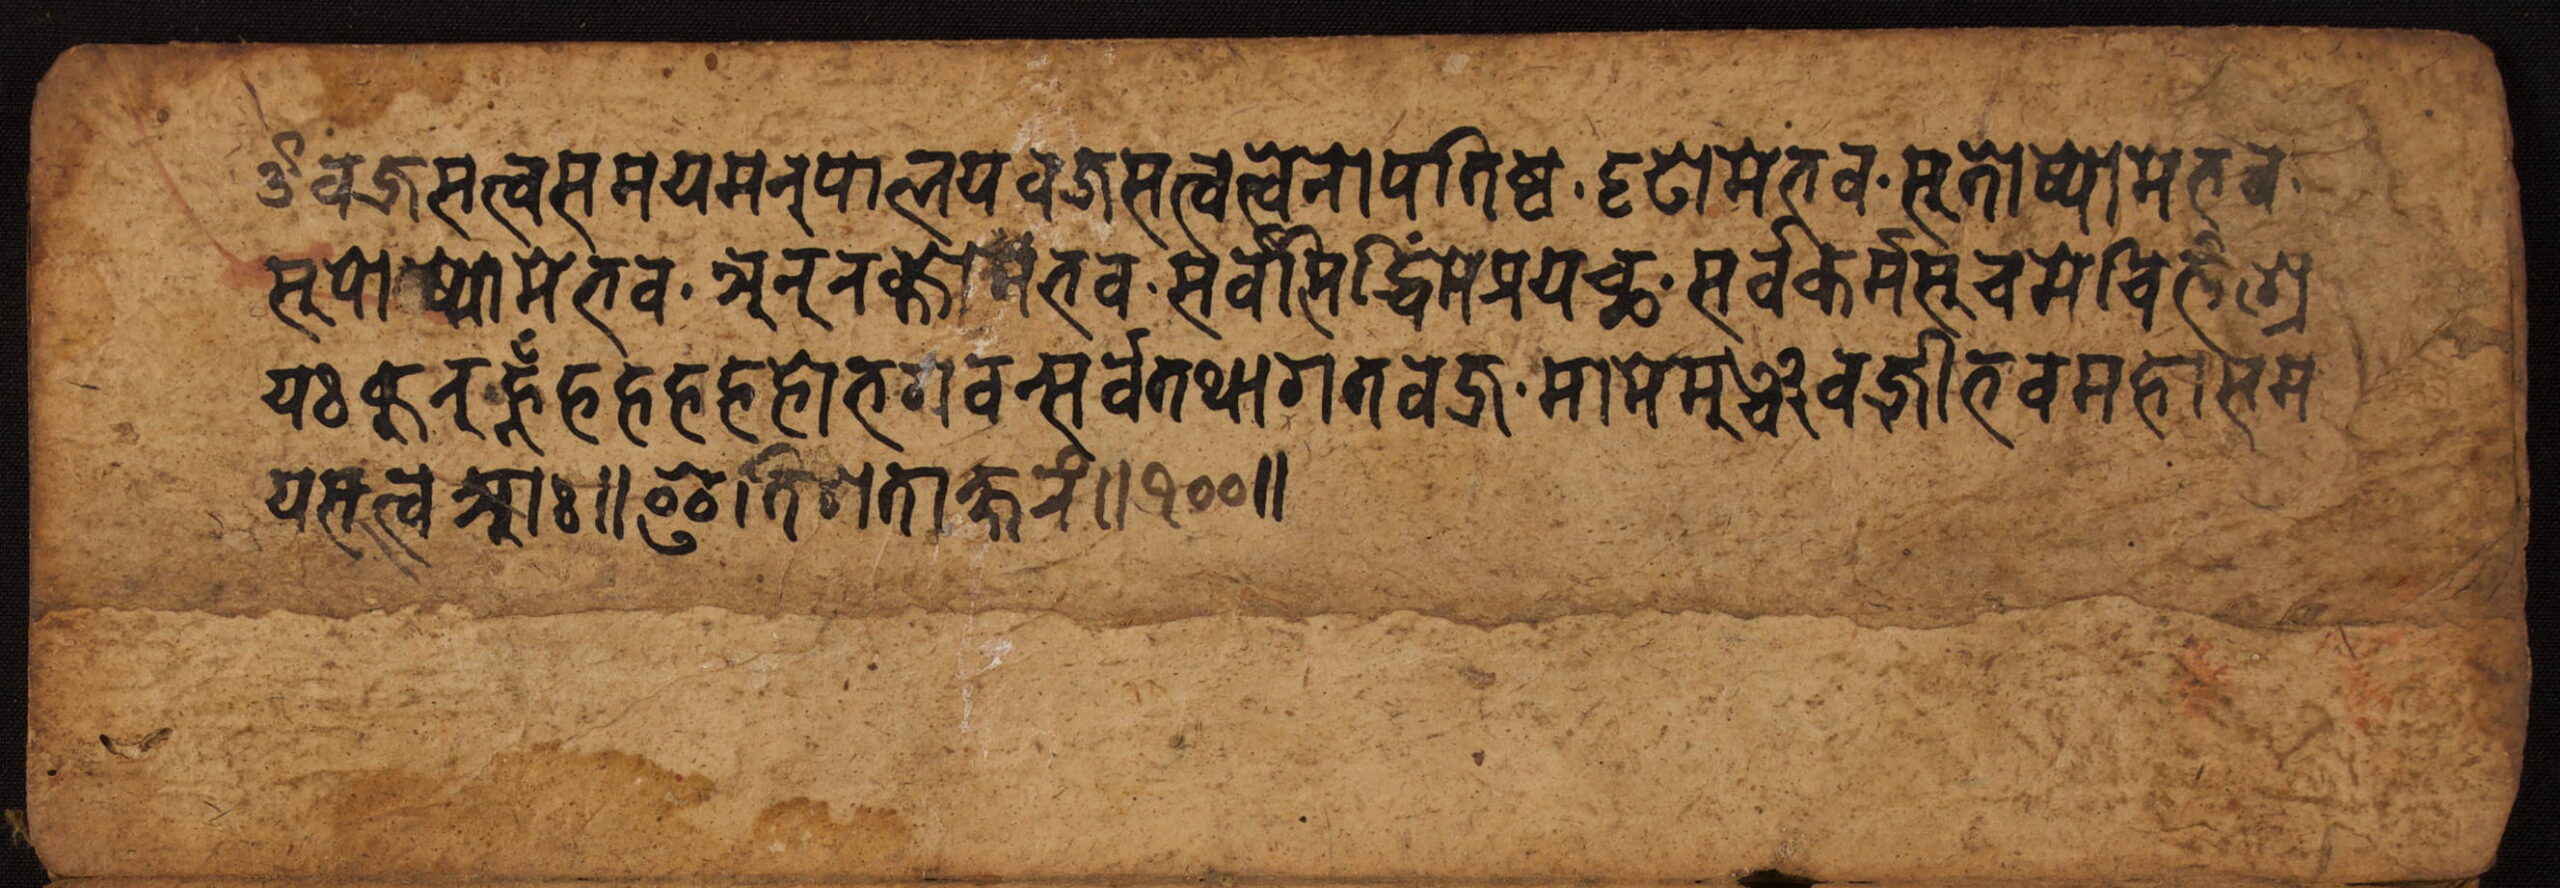 ॐ वज्रसत्वसमयमनुपालय वज्रसत्वत्वेनोपतिष्ठ· दृढोमेभव· सूतोष्योमेभव·
सूपोष्योमेभव· अनुनक्तोमेभव· सर्वसिद्धिंमेप्रयच्छ· सर्वकर्मसूचमेचित्तंश्रे
यःकुरुहूँहहहहहोभगवन्सर्वतथागतवज्र· मामेमूञ्चवज्रीभवमहासम
यसत्वआः॥ इतिशताक्षरं॥१००॥